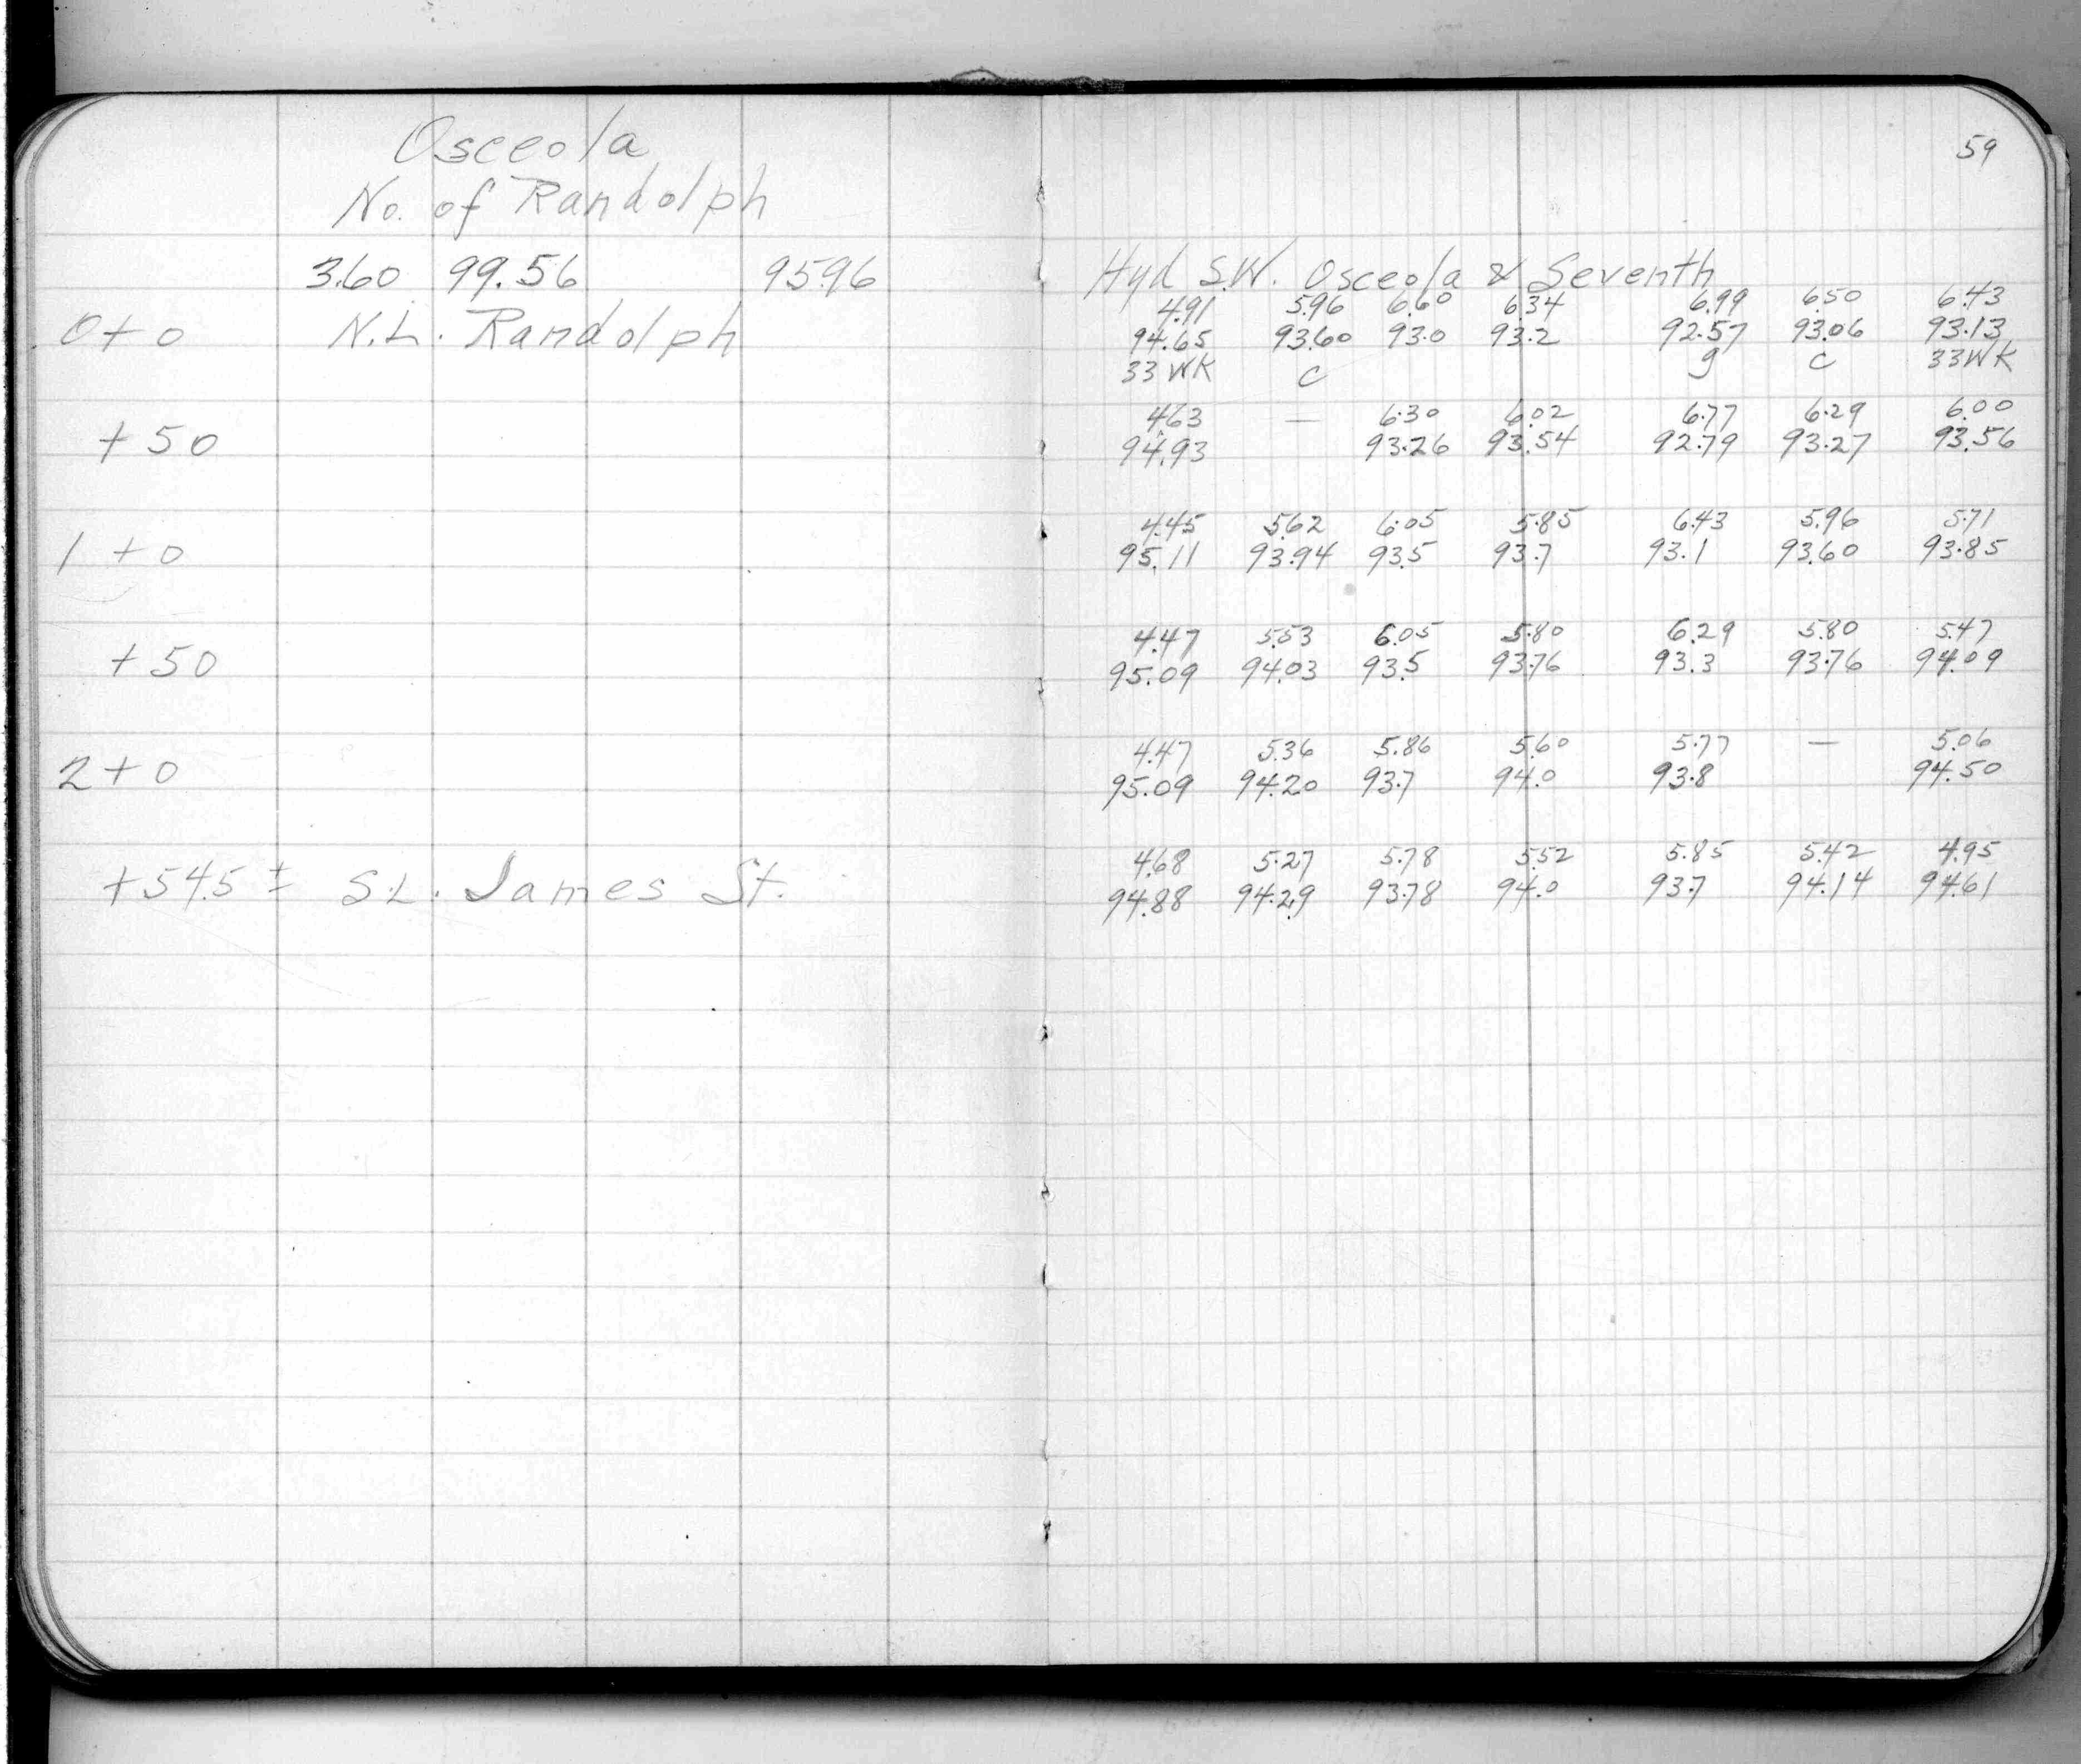 Osceola
No. of Randolph
3.60 99.56 95.96
0+0 N.L. Randolph
+50
1+0
+50
2+0
+54.5 ± S.L. James St.
59
Hyd S.W. Osceola & Seventh
4.91 5.96 6.60 6.34 6.99 6.50 6.43
94.65 93.60 93.0 93.2 92.57 93.06 93.13
33 WK c g c 33WK
4.63 — 6.30 6.02 6.77 6.29 6.00
94.93 93.26 93.54 92.79 93.27 93.56
4.45 5.62 6.05 5.85 6.43 5.96 5.71
95.11 93.94 93.5 93.7 93.1 93.60 93.85
4.47 5.53 6.05 5.80 6.29 5.80 5.47
95.09 94.03 93.5 93.76 93.3 93.76 94.09
4.47 5.36 5.86 5.60 5.77 — 5.06
95.09 94.20 93.7 94.0 93.8 94.50
4.68 5.27 5.78 5.52 5.85 5.42 4.95
94.88 94.29 93.78 94.0 93.7 94.14 94.61